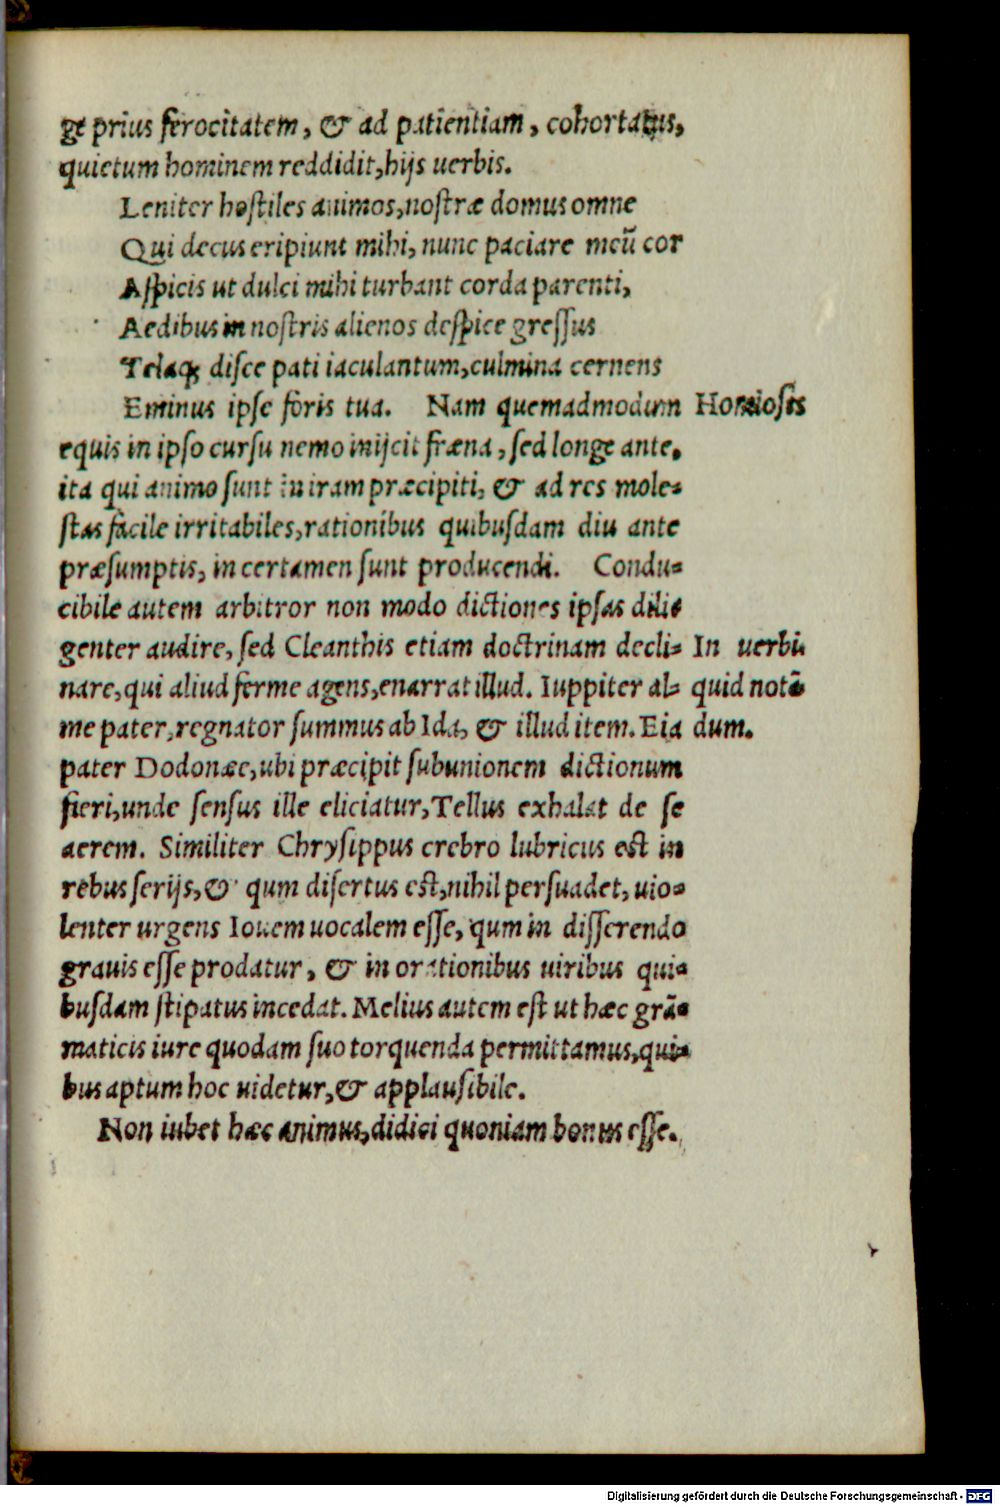 ge prius ferocitatem, & ad patientiam, cohortatus,
quietum hominem reddidit, hijs uerbis.
Leniter hostiles animos, nostræ domus omne
Qui decus eripiunt mihi, nunc paciare meũ cor
Aspicis ut dulci mihi turbant corda parenti,
Aedibus in nostris alienos despice gressus
Telaq; disce pati iaculantum, culmina cernens
Eminus ipse foris tua. Nam quemadmodum
Homiosis
equis in ipso cursu nemo inijcit fræna, sed longe ante,
ita qui animo sunt in iram præcipiti, & ad res mole-
stas facile irritabiles, rationibus quibusdam diu ante
præsumptis, in certamen sunt producendi. Condu-
cibile autem arbitror non modo dictiones ipsas dili
genter audire, sed Cleanthis etiam doctrinam decli-
In uerbis
nare, qui aliud ferme agens, enarrat illud. Iuppiter al-
quid notã
me pater, regnator summus ab Ida, & illud item. Eia
dum.
pater Dodonæe, ubi præcipit subunionem dictionum
fieri, unde sensus ille eliciatur, Tellus exhalat de se
aerem. Similiter Chrysippus crebro lubricus est in
rebus serijs, & qum disertus est, nihil persuadet, uio-
lenter urgens Iouem uocalem esse, qum in disserendo
grauis esse prodatur, & in orationibus uiribus qui-
busdam stipatus incedat. Melius autem est ut hæc grã-
maticis iure quodam suo torquenda permittamus, qui-
bus aptum hoc uidetur, & applausibile.
Non iubet hæc animus, didici quoniam bonus esse.
Digitalisierung gefördert durch die Deutsche Forschungsgemeinschaft - DFG